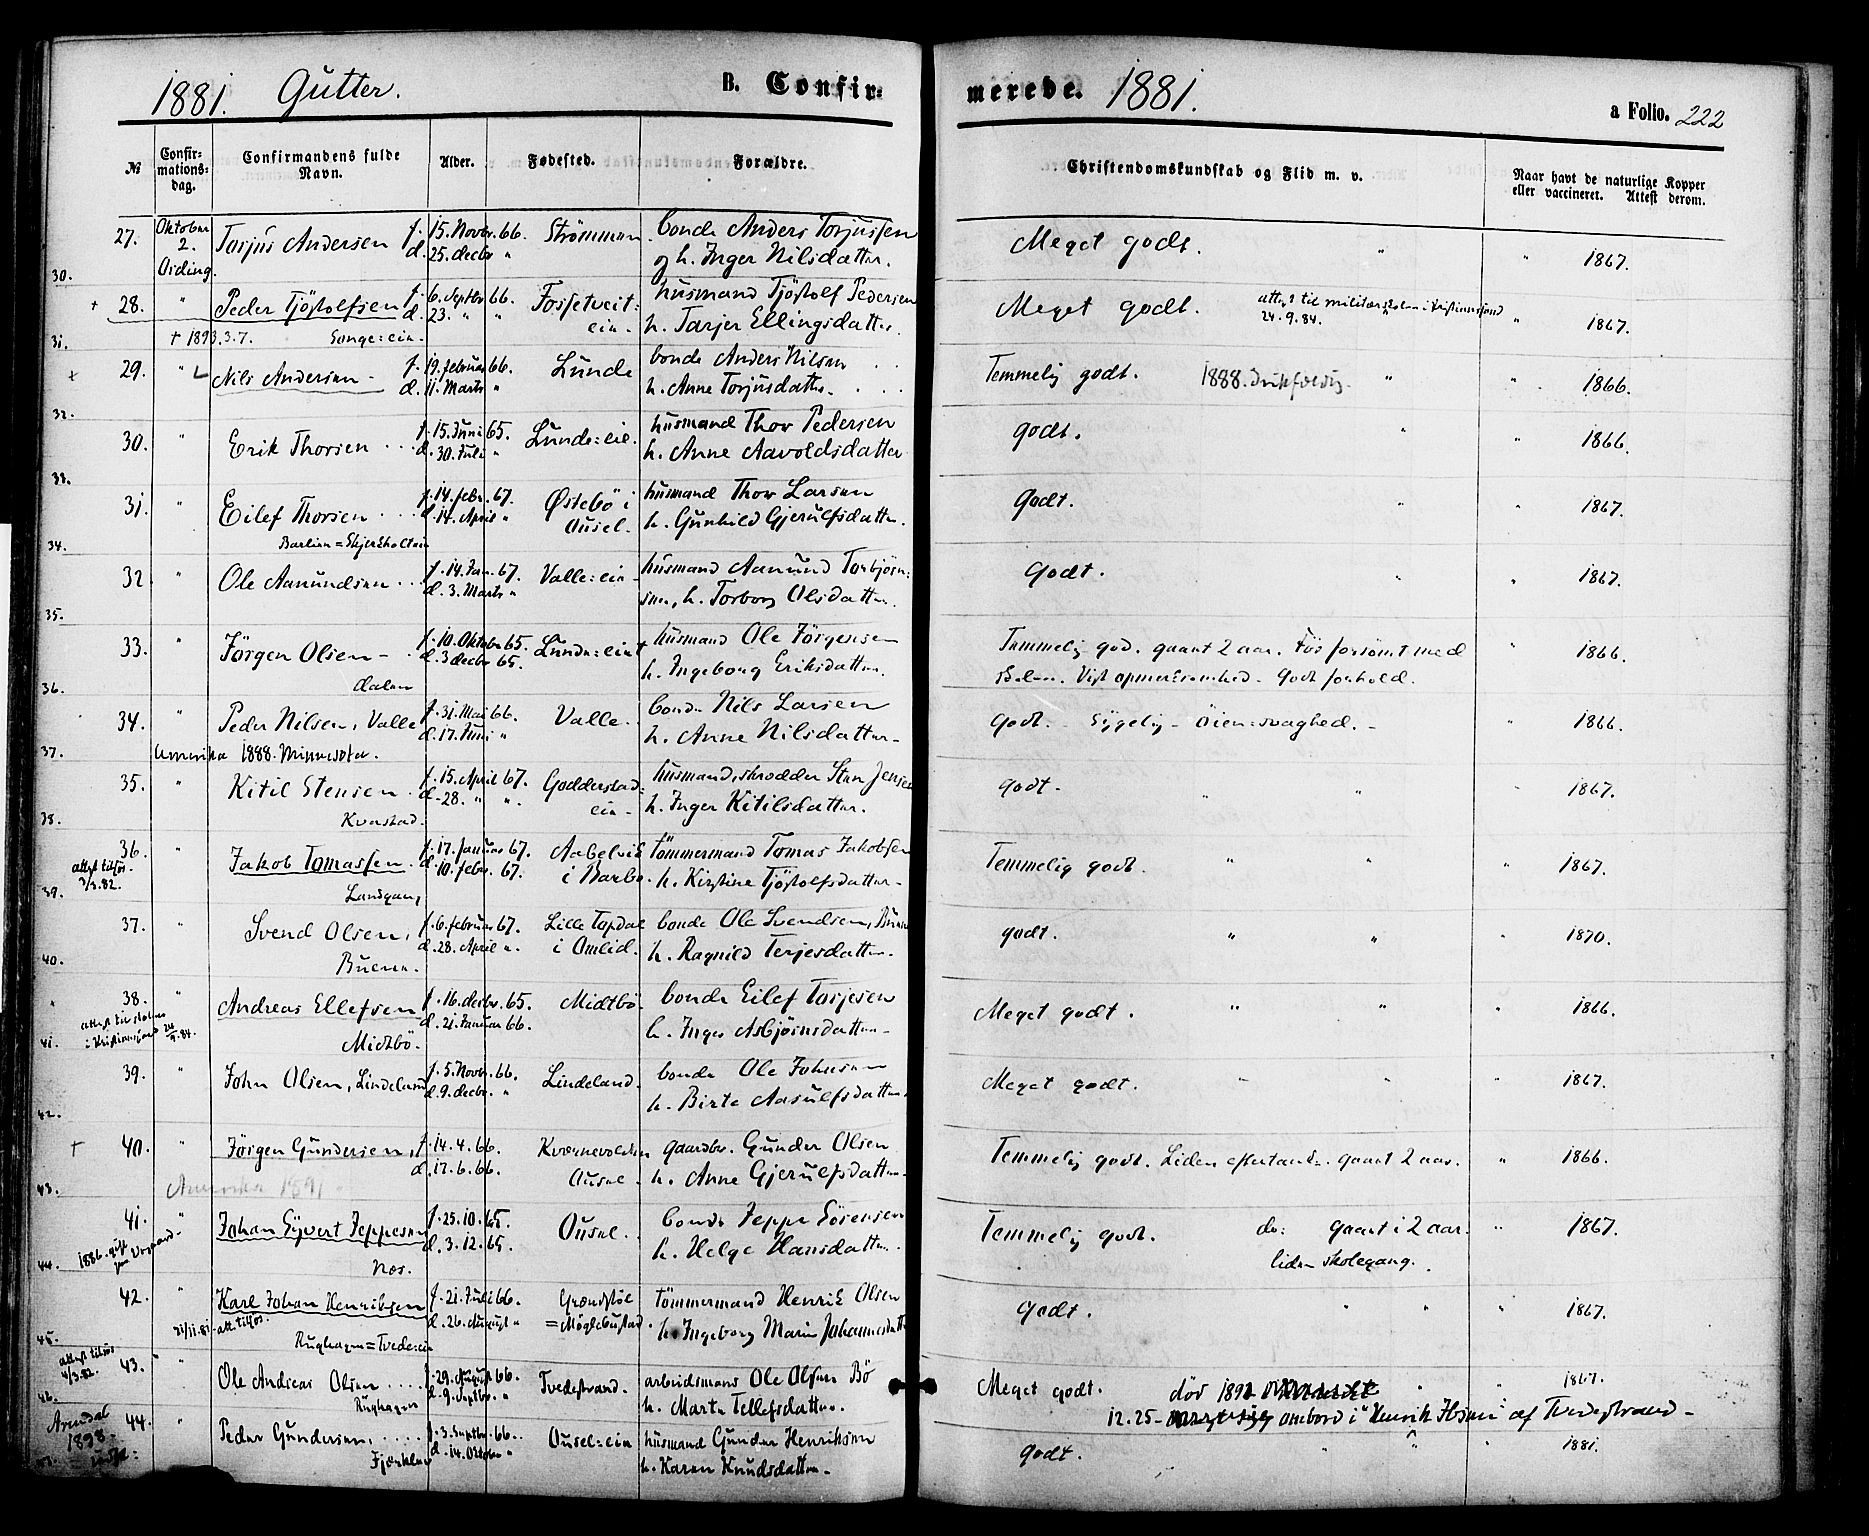 1881. Gutter. B. Confir=
merede. 1881. a Folio. 222
№ Confir=mations=dag. Confirmandens fulde Navn. Alder. Fødested. Forældre. Christendomskundskab og Flid m. v. Naar havt de naturlige Kopper eller vaccineret. Attest derom.
27. Oktober 2. Torjus Andersen f. 15. Novbr. 66. Strømmen bonde Anders Torjussen Meget godt. " " 1867.
d. 25. decbr " og h. Inger Nilsdatter.
30.
+ 28. " Peder Tjöstolfsen f. 6. Septbr 66. Fosstveit= husmand Tjöstolf Pedersen Meget godt. til militærskolen i Kristianssand " 1867.
d. 23. " " eie. h. Tarjer Ellingsdatter. 24.9.84.
31. + 1893.3.7. Songe=eie.
+ 29. " Nils Andersen f. 19. februar 66. Lunde bonde Anders Nilsen Temmelig godt. 1888. " " 1866.
d. 11. Marts " h. Anne Torjusdatter.
32.
30. " Erik Thorsen f. 15. Juni 65. Lunde=eie. husmand Thor Pedersen godt. " " 1866.
d. 30. Juli " h. Anne Aavoldsdatter
33.
31. " Eilef Thorsen f. 14. febr. 67. Østebö i husmand Thor Larsen Godt. " " 1867.
d. 14. April " Ousel. h. Gunhild Gjerulfsdatter.
34.
32. " Ole Aanundsen f. 14. Jan. 67. Valle=eie husmand Aanund Torbjörn= Godt. " " 1867.
d. 3. Marts " sen, h. Torborg Olsdatter.
35.
33. " Jörgen Olsen f. 10. Oktober 65. Lunde=eiet husmand Ole Jörgensen Temmelig god. gaaet 2 aar. Før forsömt med " 1866.
d. 3 decbr 65. h. Ingeborg Eriksdatter. Skolen. Vist opmerksomhed. Godt forhold.
36. dalen
34. " Peder Nilsen, Valle f. 31. Mai 66. Valle. bonde Nils Larsen Godt. - Sygelig - Öien=svaghed. - " 1866.
d. 17. Juni " h. Anne Nilsdatter
37. Amerika 1888. Minnesota.
35. " Kitil Stensen f. 15. April 67. Godderstad= husmand, skrædder Sten Jensen godt. " " 1867.
d. 28. " " eie h. Inger Kitilsdatter.
38. Kvastad.
36. " Jakob Tomassen f. 17. Januar 67. Aabelvik tömmermand Tomas Jakobsen Temmelig godt. " " " 1867.
3/3.82. d. 10. febr. 67. i Barbo. h. Kirstine Tjöstolfsdatter
39. Landgang
37. " Svend Olsen, f. 6. februar 67. Lille Topdal bonde Ole Svendsen, godt. " " " 1870.
d. 28. April " i Omlid. h. Ragnild Terjesdatter.
40. Buene.
38. " Andreas Ellefsen f. 16. decbr. 65. Midtbö bonde Eilef Torjesen Meget godt. " " " 1866.
d. 21. Januar 66. h. Inger Asbjörnsdatter
41. i Kristianssand 24/9.84. Midtbö.
39. " John Olsen, Lindeland f. 5. Novbr. 66. Lindeland. bonde Ole Johnsen Meget godt. " " " 1867.
d. 9. decbr. " h. Birte Aasulfsdatter
42.
+ 40. " Jörgen Gundersen, f. 14.4.66. Kvernevolden gaardbr. Gunder Olsen Temmelig godt. Liden eftertanke. gaaet 2 aar. " 1866.
d. 17.6.66. Ousel. h. Anne Gjerulfsdatter
43. Amerika 1891
41. " Johan Syvert Jeppesen f. 25.10.65. Ousel. bonde Jeppe Sörensen Temmelig godt. do: gaaet i 2 aar. " 1867.
d. 3.12.65. h. Helge Hansdatter. liden skolegang.
44. 1886. gift Næs.
42. " Karl Johan Henriksen f. 21. Juli 66. Grændstöl tömmermand Henrik Olsen Godt. " " " 1867.
21/11.81 att. tilsjös. d. 26. August " =Möglebustad. h. Ingeborg Marie Johannesdatter
45. Rughagen=Tvede:eie
attest tilsjös 4/3.82. 43. " Ole Andreas Olsen f. 29. August 66. Tvedestrand. arbeidsmand Ole Olsen Bö Meget godt. död 1892 " " 1867.
46. Rüghagen d. 9. Septbr. " h. Marte Tellefsdatter. 12.25- ombord i "Henrik Ibsen" af Tvedestrand -
Arendal 1898. 44. " Peder Gundersen, f. 3. Septbr. 66. Ousel=eie husmand Gunder Henriksen godt. " " 1881.
Fjærkleiv d. 14. Oktober " h. Karen Knudsdatter